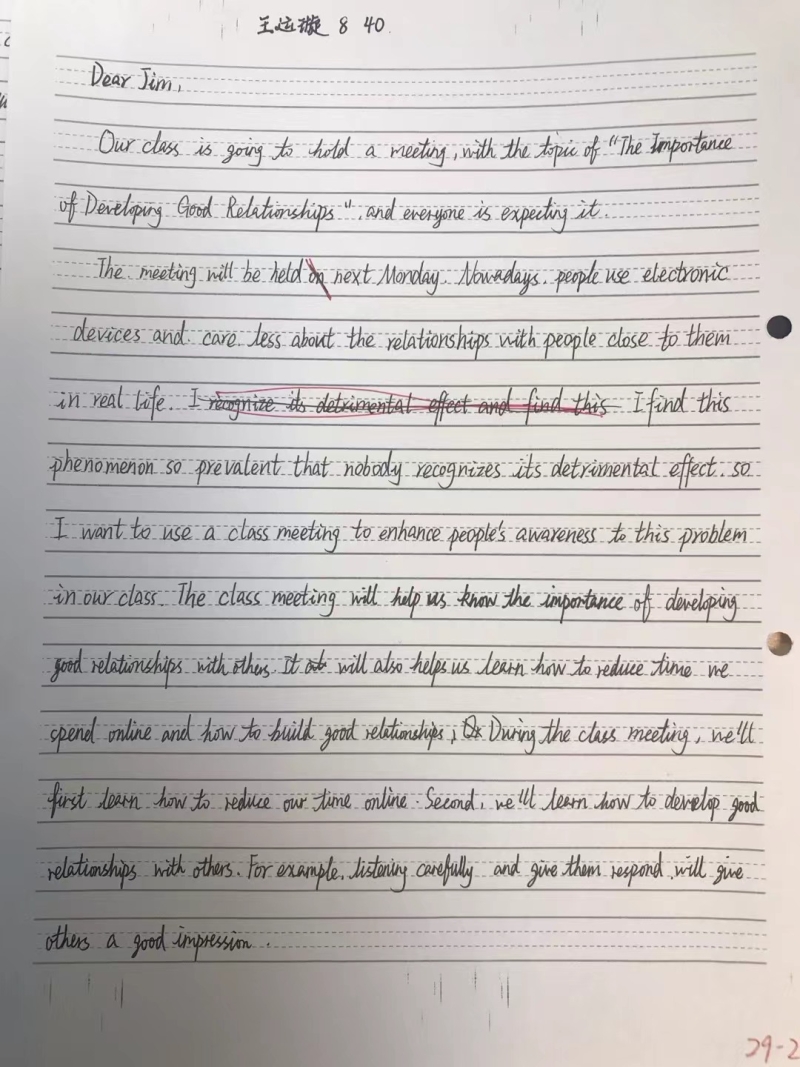 王运璇 8 40
Dear Jim,
Our class is going to hold a meeting, with the topic of "The Importance
of Developing Good Relationships", and everyone is expecting it.
The meeting will be held on next Monday. Nowadays, people use electronic
devices and care less about the relationships with people close to them
in real life. I recognize its detrimental effect and find this I find this
phenomenon so prevalent that nobody recognizes its detrimental effect. so
I want to use a class meeting to enhance people's awareness to this problem
in our class. The class meeting will help us know the importance of developing
good relationships with others. It will also helps us learn how to reduce time we
spend online and how to build good relationships, During the class meeting, we'll
first learn how to reduce our time online. Second, we'll learn how to develop good
relationships with others. For example, listening carefully and give them respond will give
others a good impression.
29-2